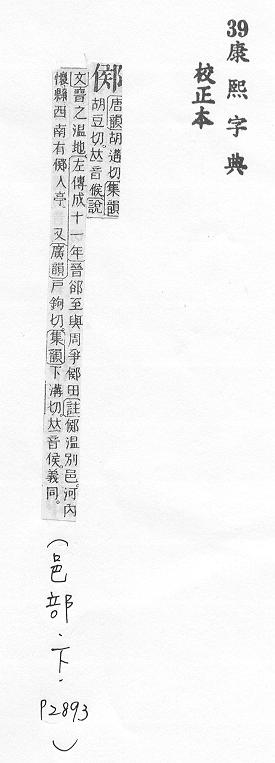 39康熙字典
校正本
鄇
唐韻胡遘切集韻
胡豆切𠀤音候說
文晉之温地左傳成十一年晉郤至與周爭鄇田註鄇温別邑河內
懷縣西南有鄇人亭 又廣韻戸鉤切集韻下溝切𠀤音侯義同
(邑部·下·P2893)